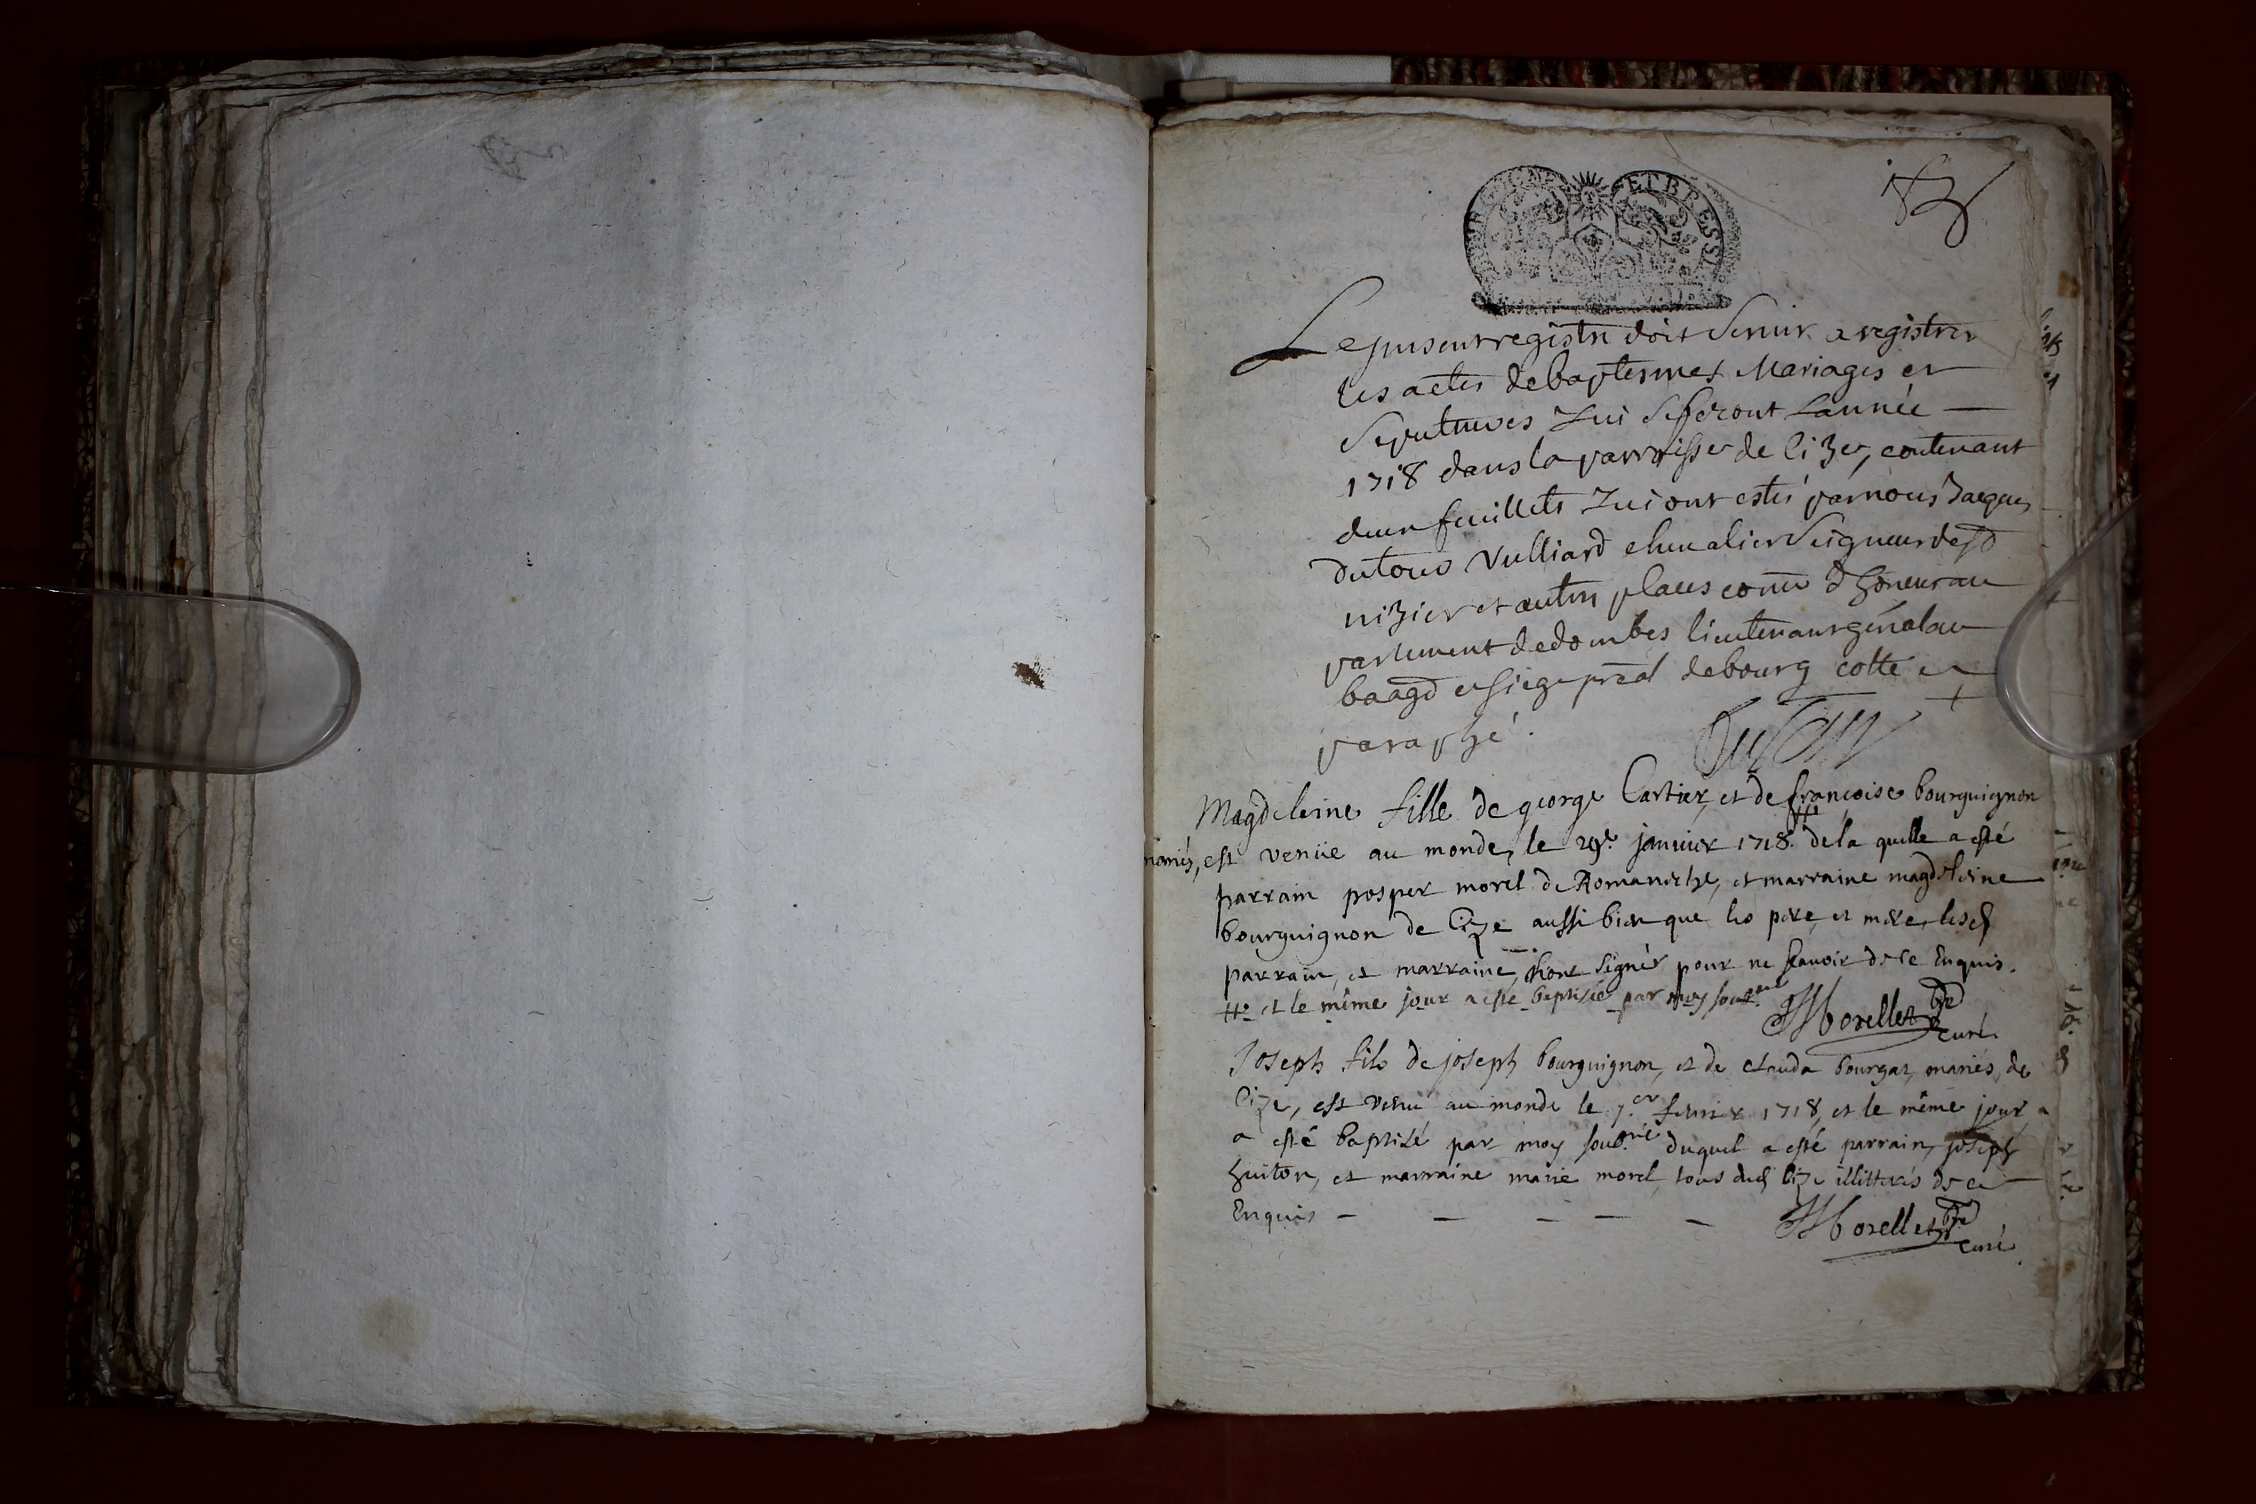 ET BRESSE
Le present registre doit servir a registrer
les actes de baptesmes Mariages et
Sepultures qui se feront l'année
1718 dans la parroisse de Cize, contenant
deux feuillets qui ont estés par nous Jaques
Dutour Vulliard chevalier seigneur de st
nizier et autres places cons.r d'honneur au
parlement de dombes lieutenant gñal au
baagē et siege pre͠al de bourg cotté et
paraphé.
DuTour
Magdeleine fille de george Cartier, et de françoise bourguignon
mariés, est venüe au monde, le 29.e janvier 1718. # de la quelle a esté
parrain prosper morel de Romaneche, et marraine magdeleine
bourguignon de Cize aussi bien que les père, et mère, lesd
parrain, et marraine, n'hont signés pour ne sçavoir de ce Enquis.
# et le même jour a esté baptisée par moy sous.né
Morellet
curé
Joseph fils de joseph bourguignon, et de clauda bourgat, mariés, de
Cize, est venu au monde le 7.er fevrier 1718, et le même jour a
a esté baptisé par moy sous.né duquel a esté parrain, joseph
huiton, et marraine marie morel, tous dud Cize illitterés de ce
Enquis
Morellet
curé